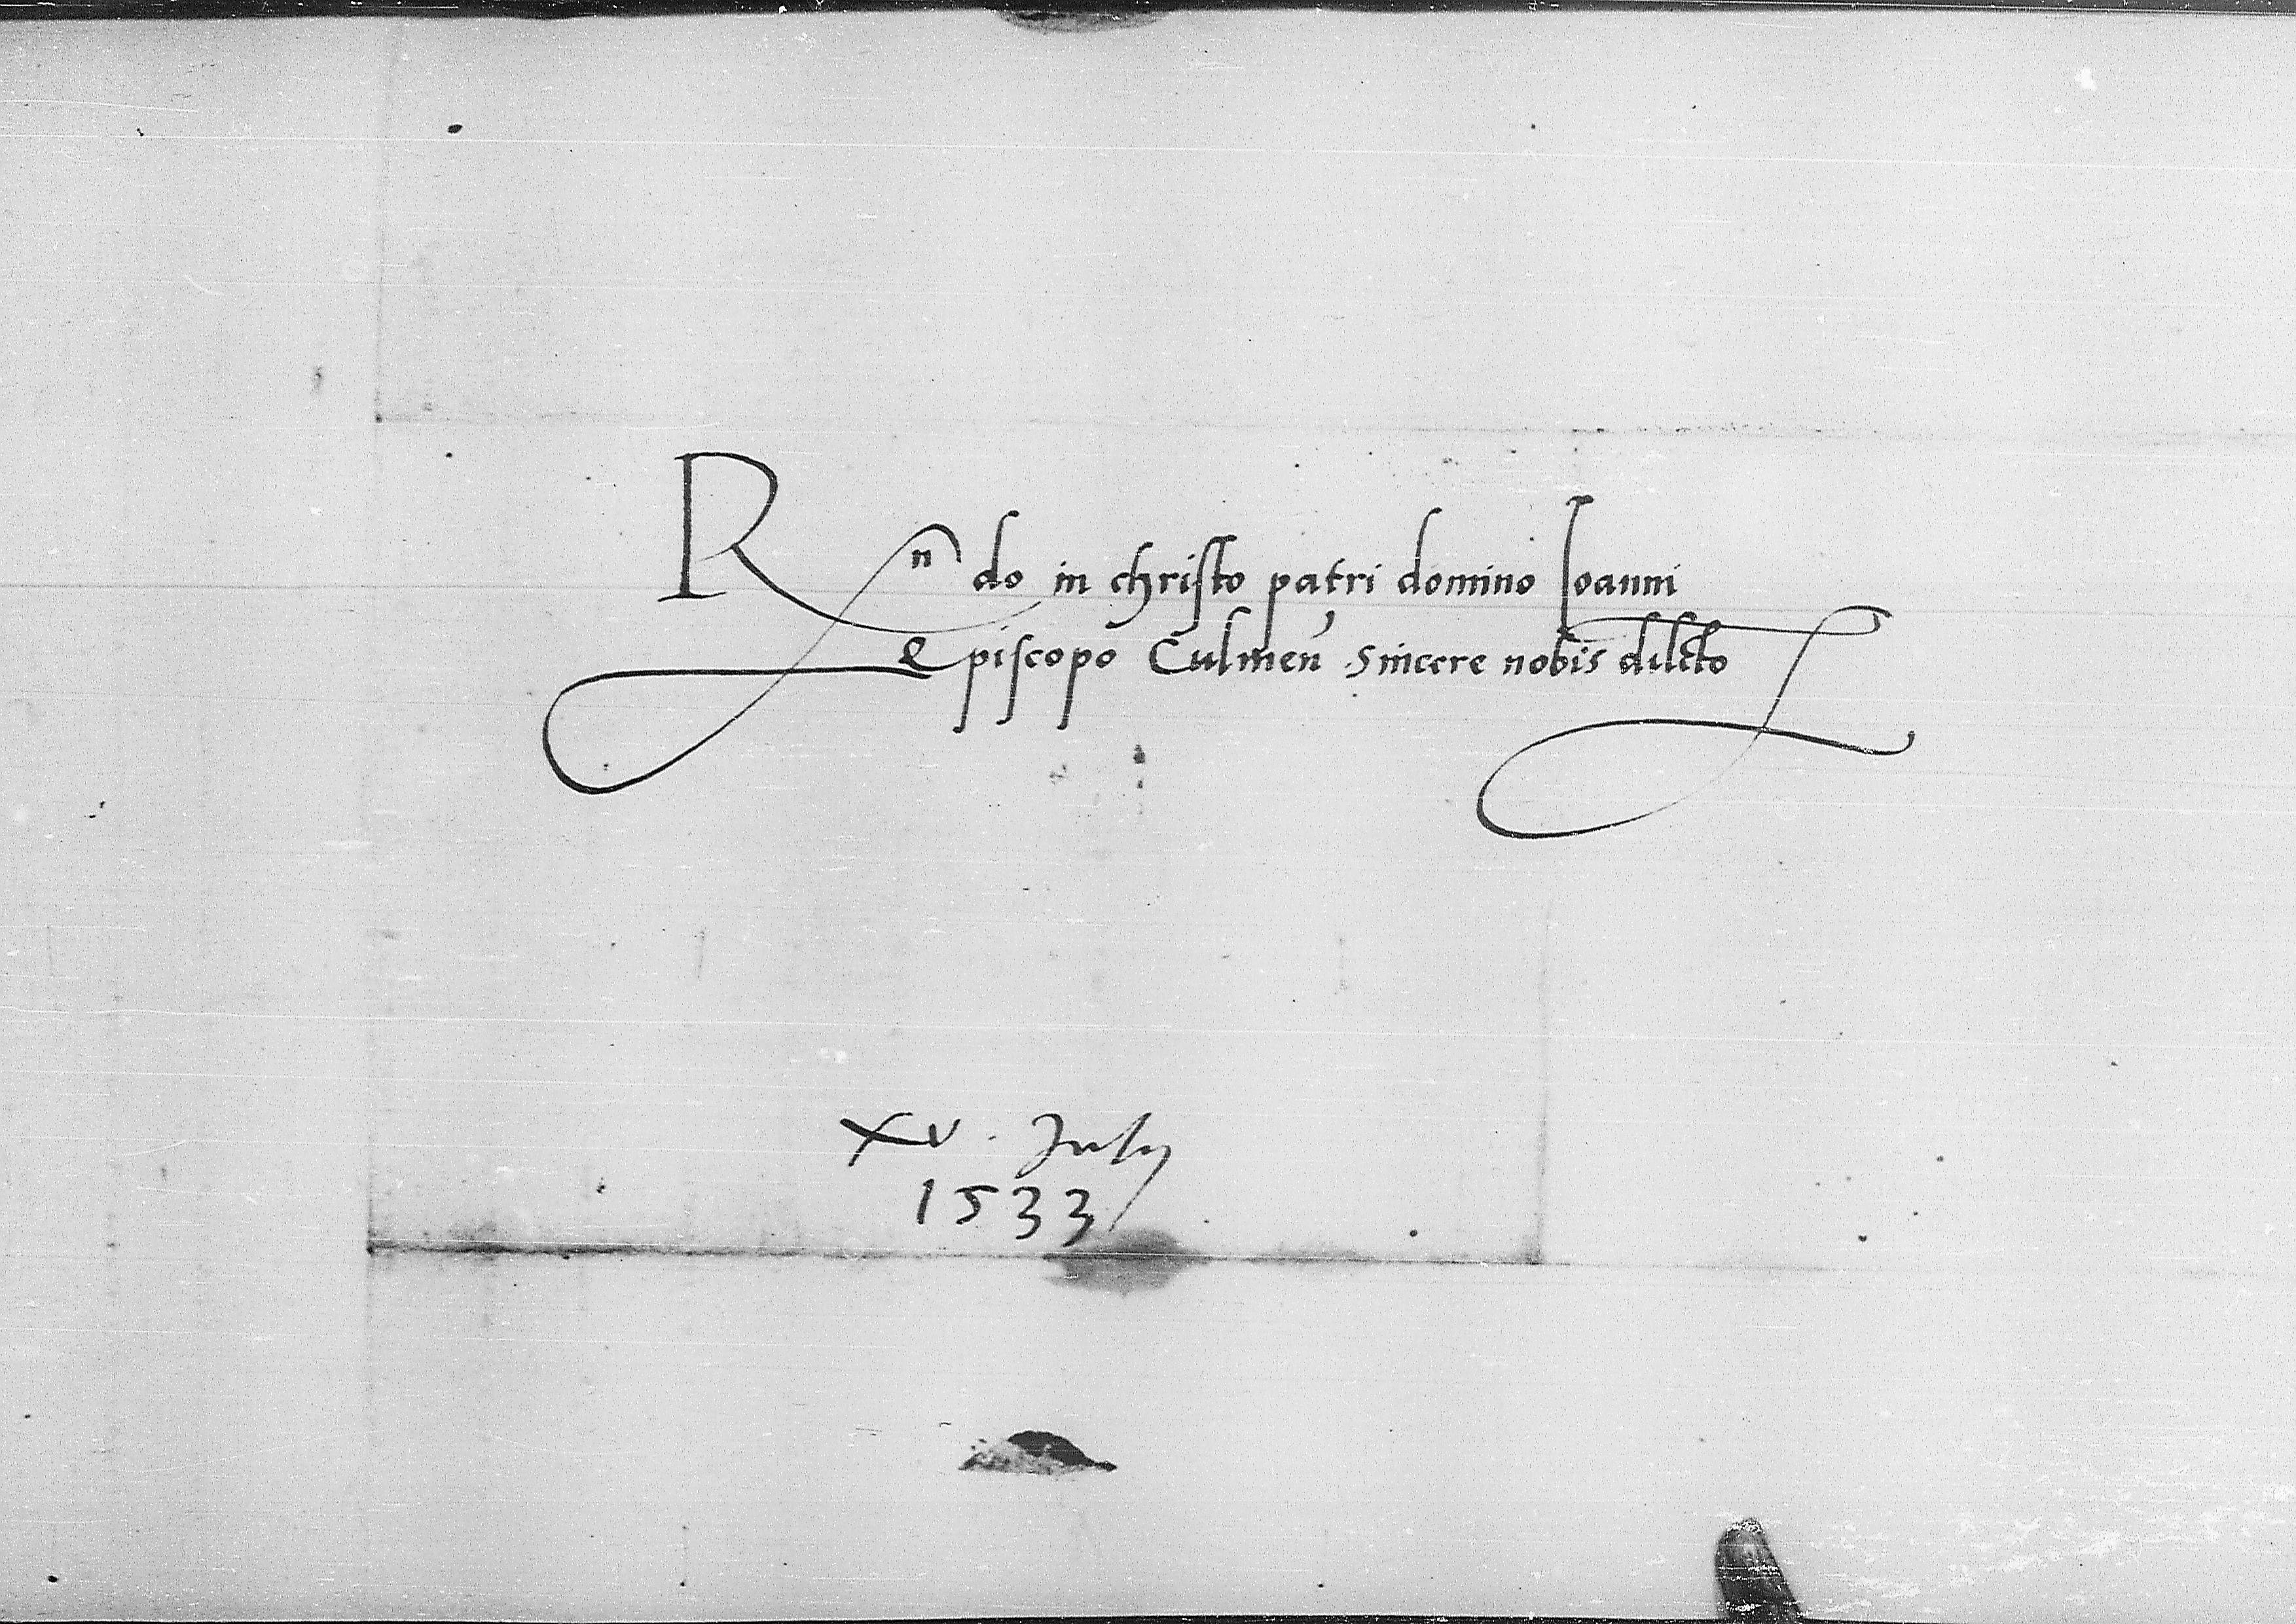 Rndo in christo patri domino Ioanni
Episcopo Culmen̄ sincere nobis dilecto
XV. July
1533